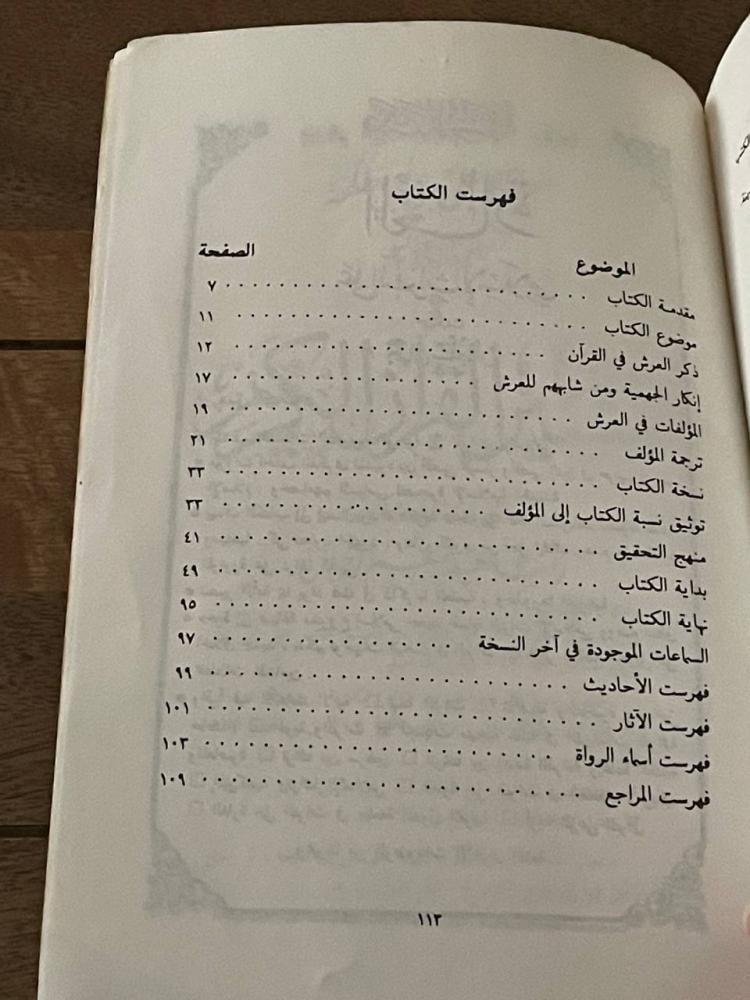 فهرست الكتاب
الموضوع الصفحة
مقدمة الكتاب ٧
موضوع الكتاب ١١
ذكر العرش في القرآن ١٢
إنكار الجهمية ومن شابههم للعرش ١٧
المؤلفات في العرش ١٩
ترجمة المؤلف ٢١
نسخة الكتاب ٣٣
توثيق نسبة الكتاب إلى المؤلف ٣٣
منهج التحقيق ٤١
بداية الكتاب ٤٩
نهاية الكتاب ٩٥
السماعات الموجودة في آخر النسخة ٩٧
فهرست الأحاديث ٩٩
فهرست الآثار ١٠١
فهرست أسماء الرواة ١٠٣
فهرست المراجع ١٠٩
١١٣